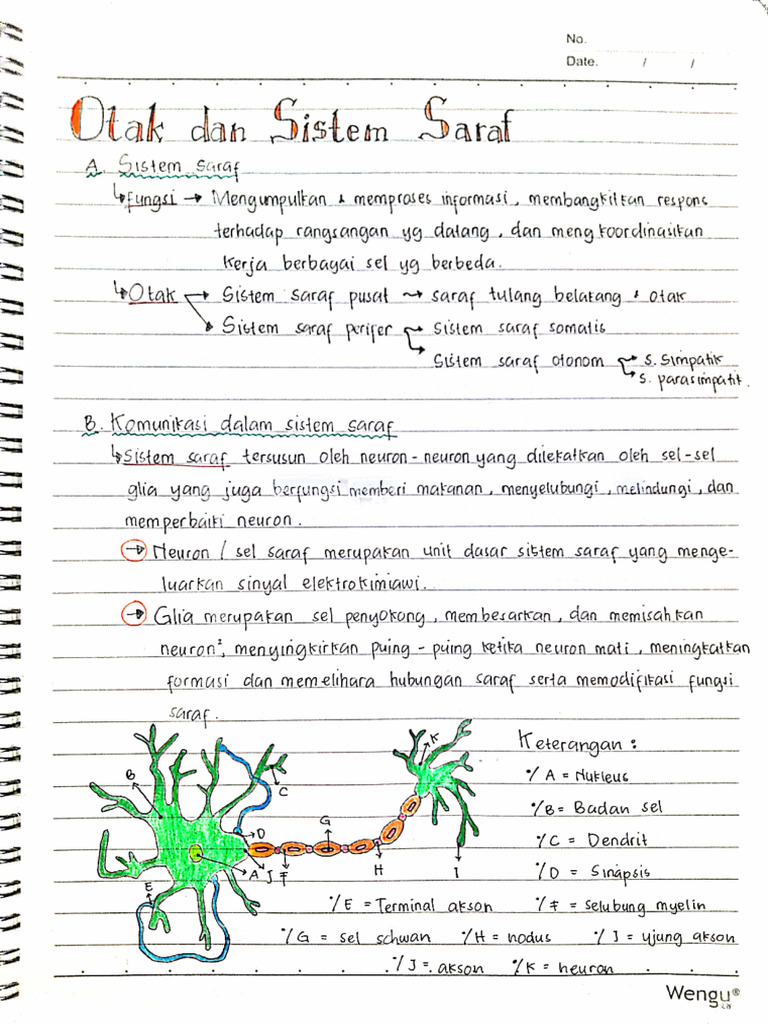 No.
Date. / /
Otak dan Sistem Saraf
A. Sistem saraf
↳ fungsi → Mengumpulkan & memproses informasi, membangkitkan respons
terhadap rangsangan yg datang, dan mengkoordinasikan
kerja berbagai sel yg berbeda.
↳ Otak → Sistem saraf pusat → saraf tulang belakang & otak
Sistem saraf perifer → Sistem saraf somatis
Sistem saraf otonom → s. simpatik
s. parasimpatit.
B. Komunikasi dalam sistem saraf
↳ Sistem saraf tersusun oleh neuron-neuron yang dilekatkan oleh sel-sel
glia yang juga berfungsi memberi makanan, menyelubungi, melindungi, dan
memperbaiki neuron.
→ Neuron / sel saraf merupakan unit dasar sistem saraf yang menge-
luarkan sinyal elektrokimiawi.
→ Glia merupakan sel penyokong, membesarkan, dan memisahkan
neuron², menyingkirkan puing-puing ketika neuron mati, meningkatkan
formasi dan memelihara hubungan saraf serta memodifikasi fungsi
saraf.
Keterangan :
B
C
K
D
G
A
J
F
H
I
E
% A = Nukleus
% B = Badan sel
% C = Dendrit
% D = Sinapsis
% E = Terminal akson % F = selubung myelin
% G = sel schwan % H = nodus % I = ujung akson
% J = akson % K = neuron
Wengu®